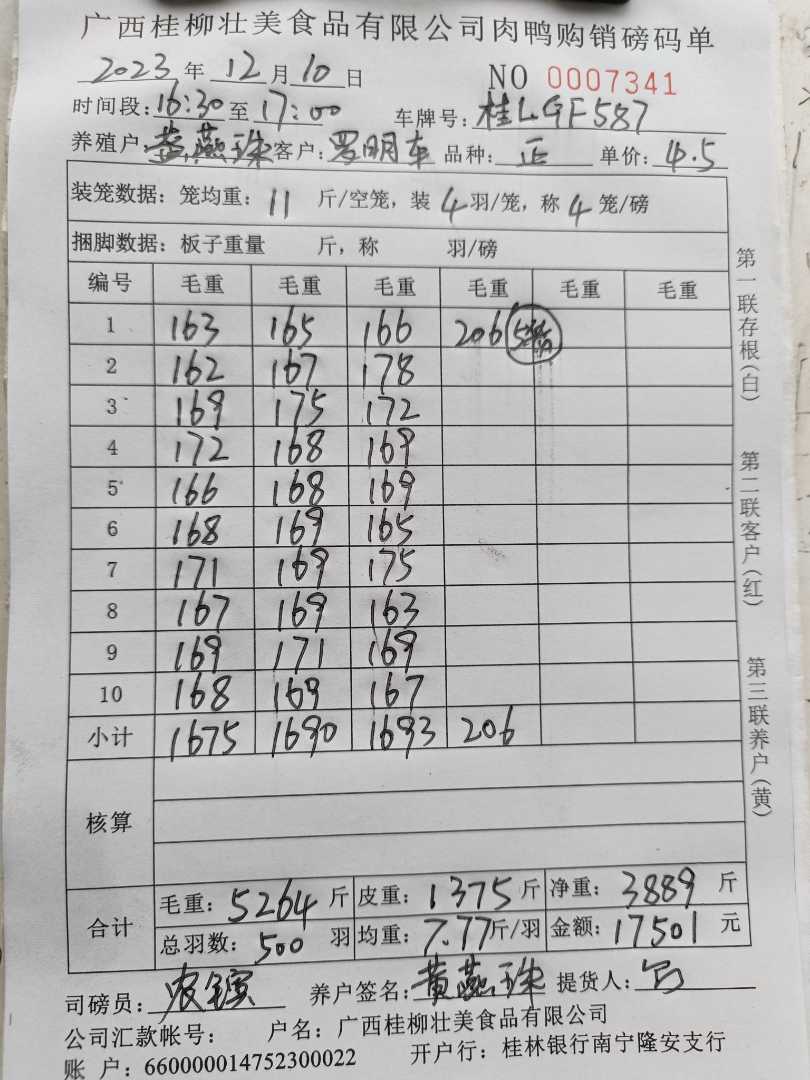 广西桂柳壮美食品有限公司肉鸭购销磅码单
2023 年 12 月 10 日 NO 0007341
时间段: 16:30 至 17:00 车牌号: 桂LGF587
养殖户: 黄燕珠 客户: 罗明车 品种: 正 单价: 4.5
装笼数据: 笼均重: 11 斤/空笼, 装 4 羽/笼, 称 4 笼/磅
捆脚数据: 板子重量 斤, 称 羽/磅
编号 毛重 毛重 毛重 毛重 毛重 毛重
1 163 165 166 206
2 162 167 178
3 169 175 172
4 172 168 169
5 166 168 169
6 168 169 165
7 171 169 175
8 167 169 163
9 169 171 169
10 168 169 167
小计 1675 1690 1693 206
核算
合计 毛重: 5264 斤 皮重: 1375 斤 净重: 3889 斤
总羽数: 500 羽 均重: 7.77 斤/羽 金额: 17501 元
司磅员: 养户签名: 黄燕珠 提货人:
公司汇款帐号: 户名: 广西桂柳壮美食品有限公司
账 户: 660000014752300022 开户行: 桂林银行南宁隆安支行
第一联存根(白)
第二联客户(红)
第三联养户(黄)